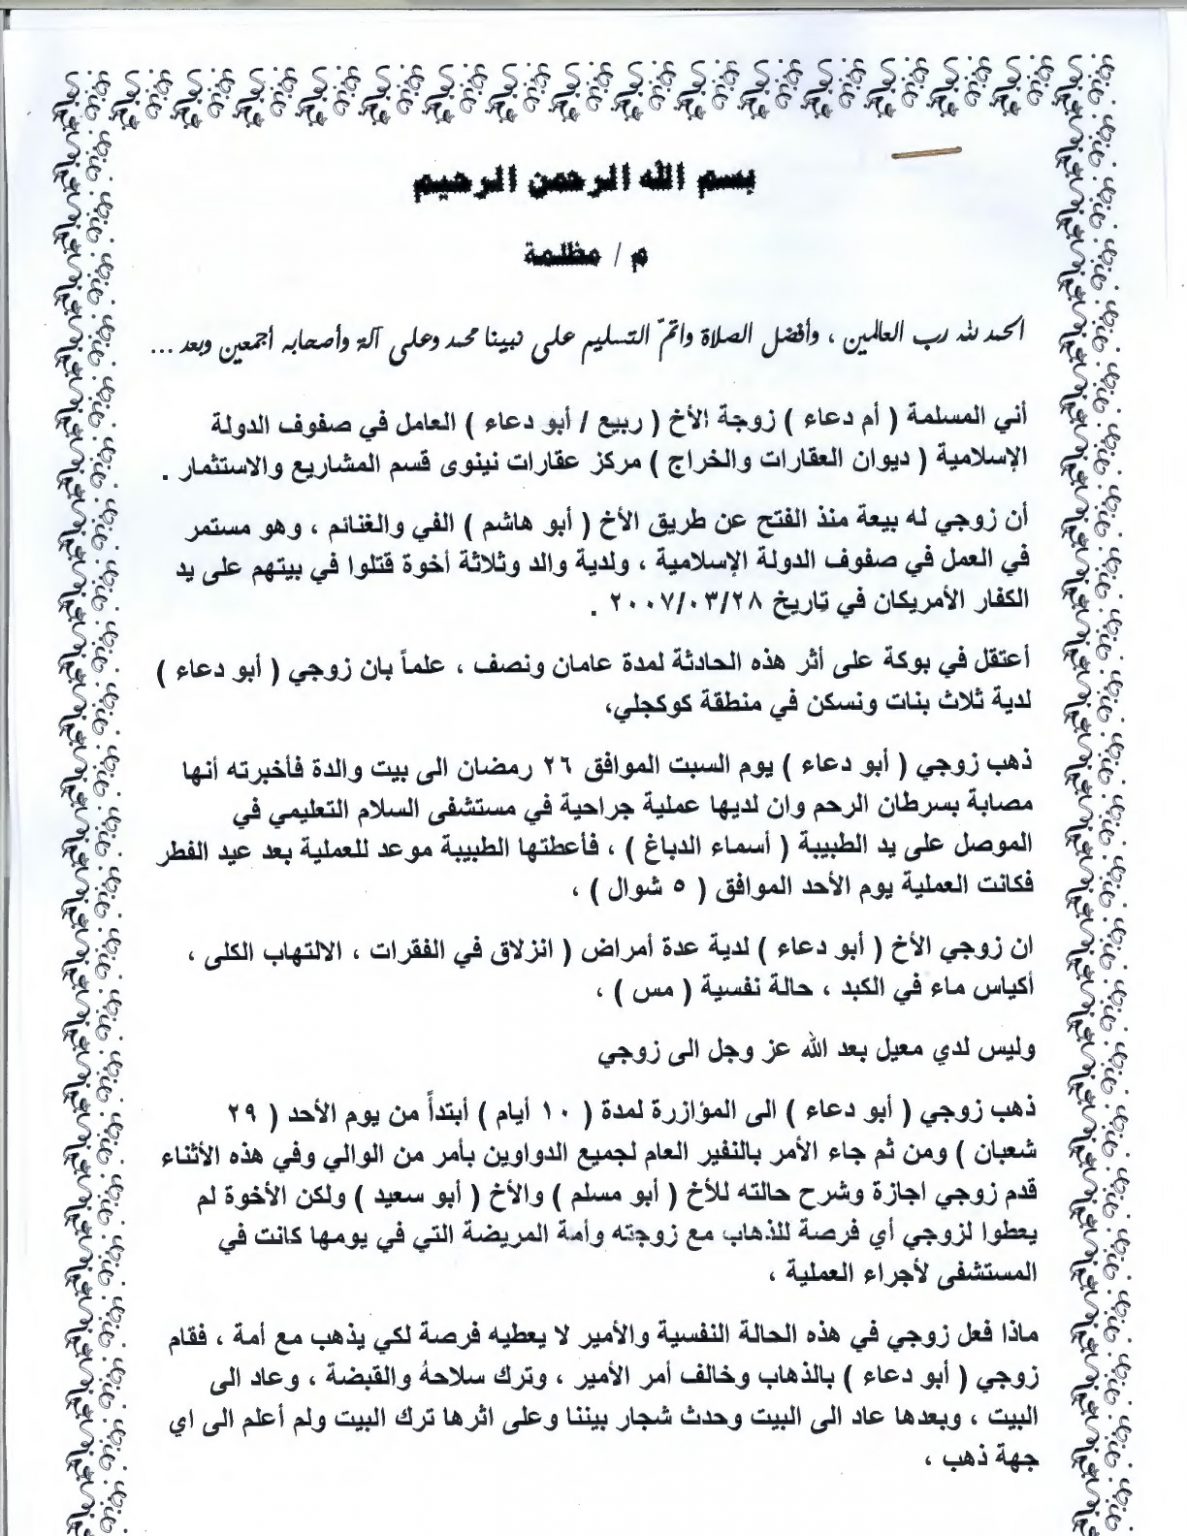 بسم الله الرحمن الرحيم
م / مظلمة
الحمد لله رب العالمين ، وأفضل الصلاة واتمّ التسليم على نبينا محمد وعلى آلة وأصحابه أجمعين وبعد ...
أني المسلمة ( أم دعاء ) زوجة الأخ ( ربيع / أبو دعاء ) العامل في صفوف الدولة
الإسلامية ( ديوان العقارات والخراج ) مركز عقارات نينوى قسم المشاريع والاستثمار .
أن زوجي له بيعة منذ الفتح عن طريق الأخ ( أبو هاشم ) الفي والغنائم ، وهو مستمر
في العمل في صفوف الدولة الإسلامية ، ولدية والد وثلاثة أخوة قتلوا في بيتهم على يد
الكفار الأمريكان في تاريخ ٢٠٠٧/٠٣/٢٨ .
أعتقل في بوكة على أثر هذه الحادثة لمدة عامان ونصف ، علماً بان زوجي ( أبو دعاء )
لدية ثلاث بنات ونسكن في منطقة كوكجلي،
ذهب زوجي ( أبو دعاء ) يوم السبت الموافق ٢٦ رمضان الى بيت والدة فأخبرته أنها
مصابة بسرطان الرحم وان لديها عملية جراحية في مستشفى السلام التعليمي في
الموصل على يد الطبيبة ( أسماء الدباغ ) ، فأعطتها الطبيبة موعد للعملية بعد عيد الفطر
فكانت العملية يوم الأحد الموافق ( ٥ شوال ) ،
ان زوجي الأخ ( أبو دعاء ) لدية عدة أمراض ( انزلاق في الفقرات ، الالتهاب الكلى ،
أكياس ماء في الكبد ، حالة نفسية ( مس ) ،
وليس لدي معيل بعد الله عز وجل الى زوجي
ذهب زوجي ( أبو دعاء ) الى المؤازرة لمدة ( ١٠ أيام ) أبتدأً من يوم الأحد ( ٢٩
شعبان ) ومن ثم جاء الأمر بالنفير العام لجميع الدواوين بأمر من الوالي وفي هذه الأثناء
قدم زوجي اجازة وشرح حالته للأخ ( أبو مسلم ) والأخ ( أبو سعيد ) ولكن الأخوة لم
يعطوا لزوجي أي فرصة للذهاب مع زوجته وأمة المريضة التي في يومها كانت في
المستشفى لأجراء العملية ،
ماذا فعل زوجي في هذه الحالة النفسية والأمير لا يعطيه فرصة لكي يذهب مع أمة ، فقام
زوجي ( أبو دعاء ) بالذهاب وخالف أمر الأمير ، وترك سلاحهُ والقبضة ، وعاد الى
البيت ، وبعدها عاد الى البيت وحدث شجار بيننا وعلى اثرها ترك البيت ولم أعلم الى اي
جهة ذهب ،